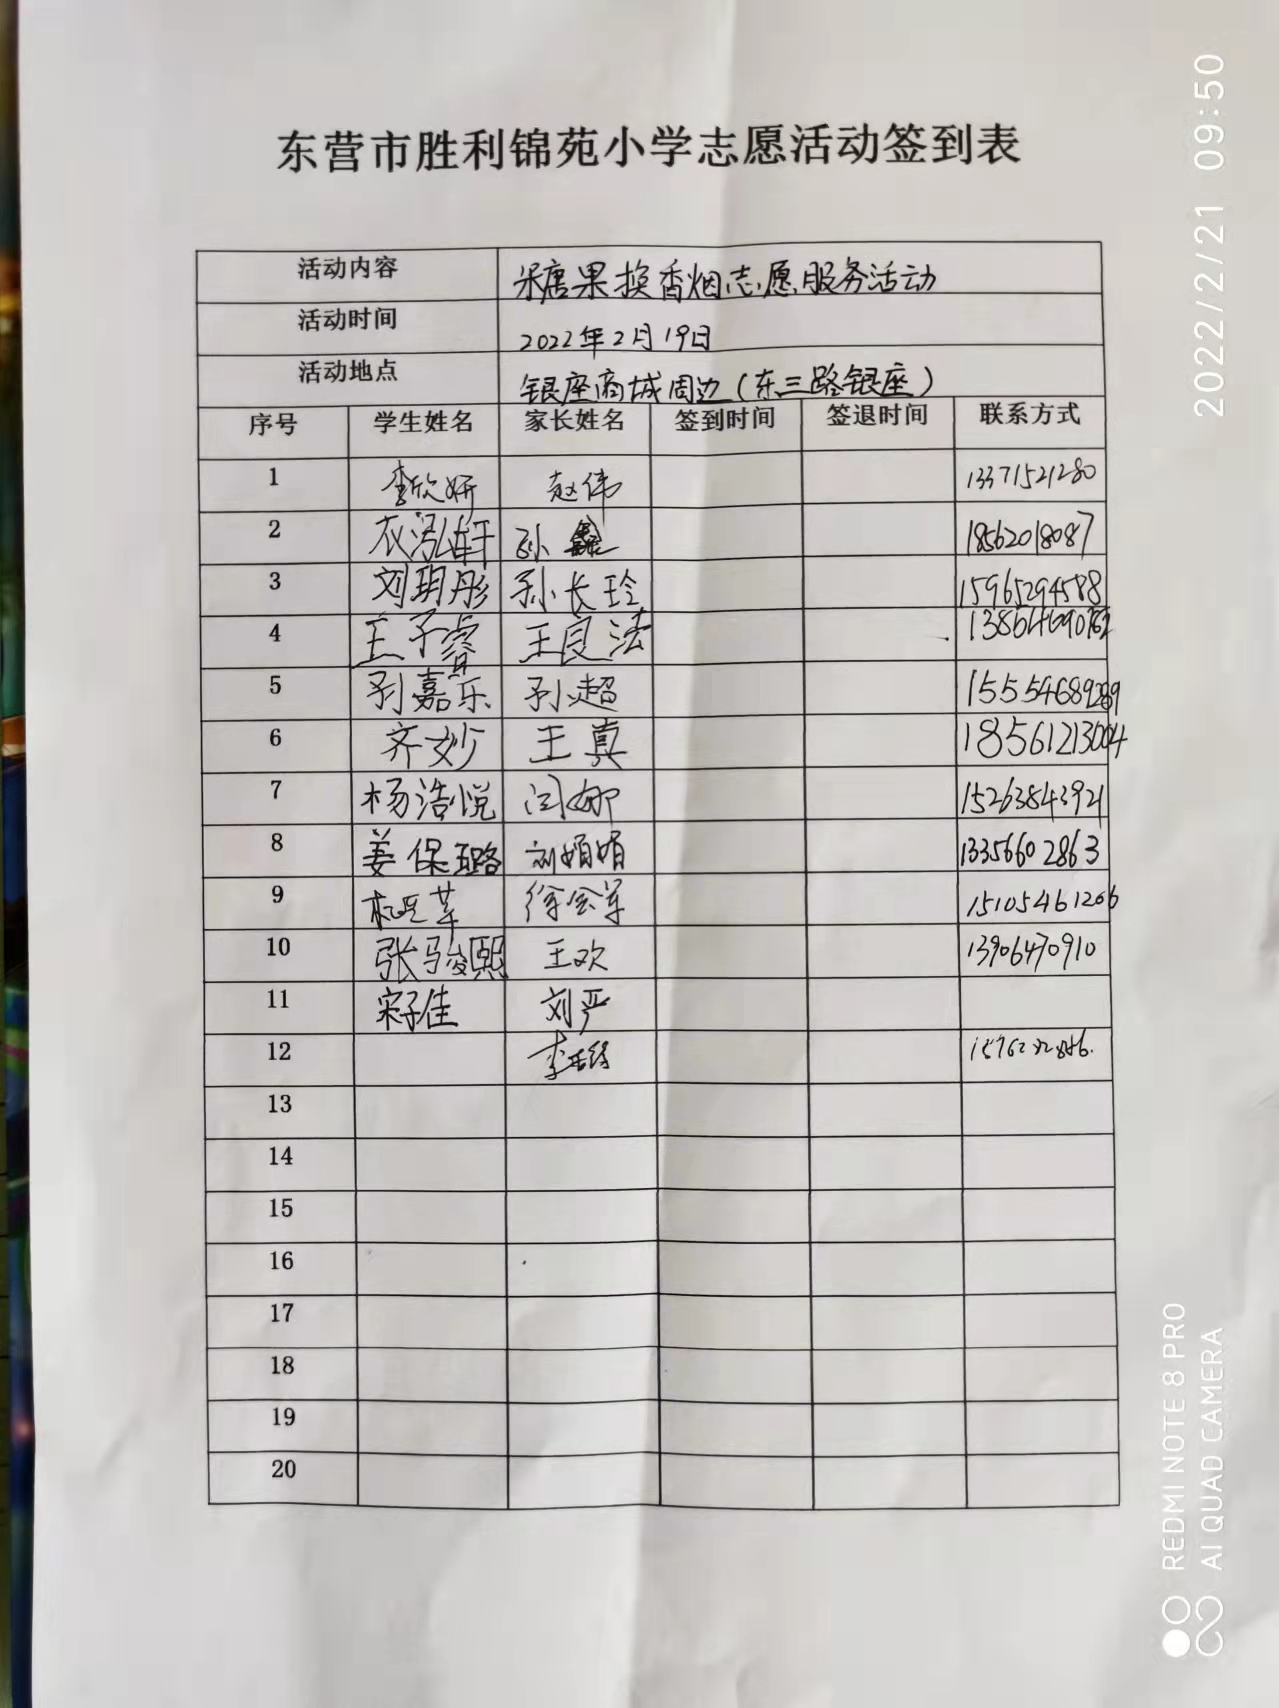 东营市胜利锦苑小学志愿活动签到表
活动内容 糖果换香烟志愿服务活动
活动时间 2022年2月19日
活动地点 银座商城周边(东三路银座)
序号 学生姓名 家长姓名 签到时间 签退时间 联系方式
1 李欣妍 赵伟 13371521280
2 衣泓轩 孙鑫 18562018087
3 刘玥彤 孙长玲 15965294588
4 王子睿 王良法
5 孙嘉乐 孙超 15554689289
6 齐妙 王真 18561213004
7 杨浩悦 闫娜 15263843921
8 姜保璐 刘娟娟 13356602863
9 徐会军 15105461266
10 张骏熙 王欢 13906470910
11 宋子佳 刘严
12
13
14
15
16
17
18
19
20
2022/2/21 09:50
REDMI NOTE 8 PRO
AI QUAD CAMERA